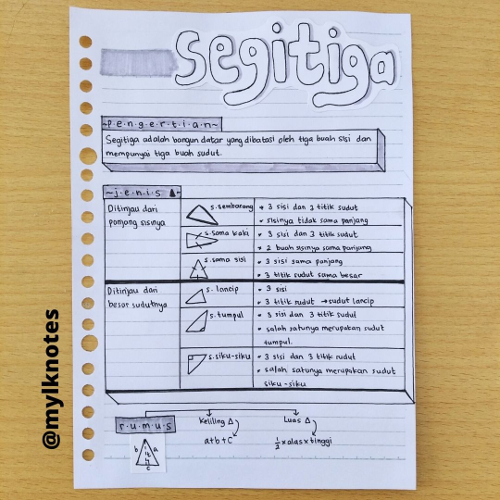 segitiga
~p·e·n·g·e·r·t·i·a·n~
Segitiga adalah bangun datar yang dibatasi oleh tiga buah sisi dan
mempunyai tiga buah sudut.
~j·e·n·i·s
Ditinjau dari
panjang sisinya
s. sembarang
• 3 sisi dan 3 titik sudut
• sisinya tidak sama panjang
s. sama kaki
• 3 sisi dan 3 titik sudut
• 2 buah sisinya sama panjang
s. sama sisi
• 3 sisi sama panjang
• 3 titik sudut sama besar
Ditinjau dari
besar sudutnya
s. lancip
• 3 sisi
• 3 titik sudut → sudut lancip
s. tumpul
• 3 sisi dan 3 titik sudut
• salah satunya merupakan sudut
tumpul.
s. siku-siku
• 3 sisi dan 3 titik sudut
• salah satunya merupakan sudut
siku-siku
r·u·m·u·s
Keliling Δ
a+b+c
Luas Δ
½ x alas x tinggi
b
t
a
c
@mylknotes